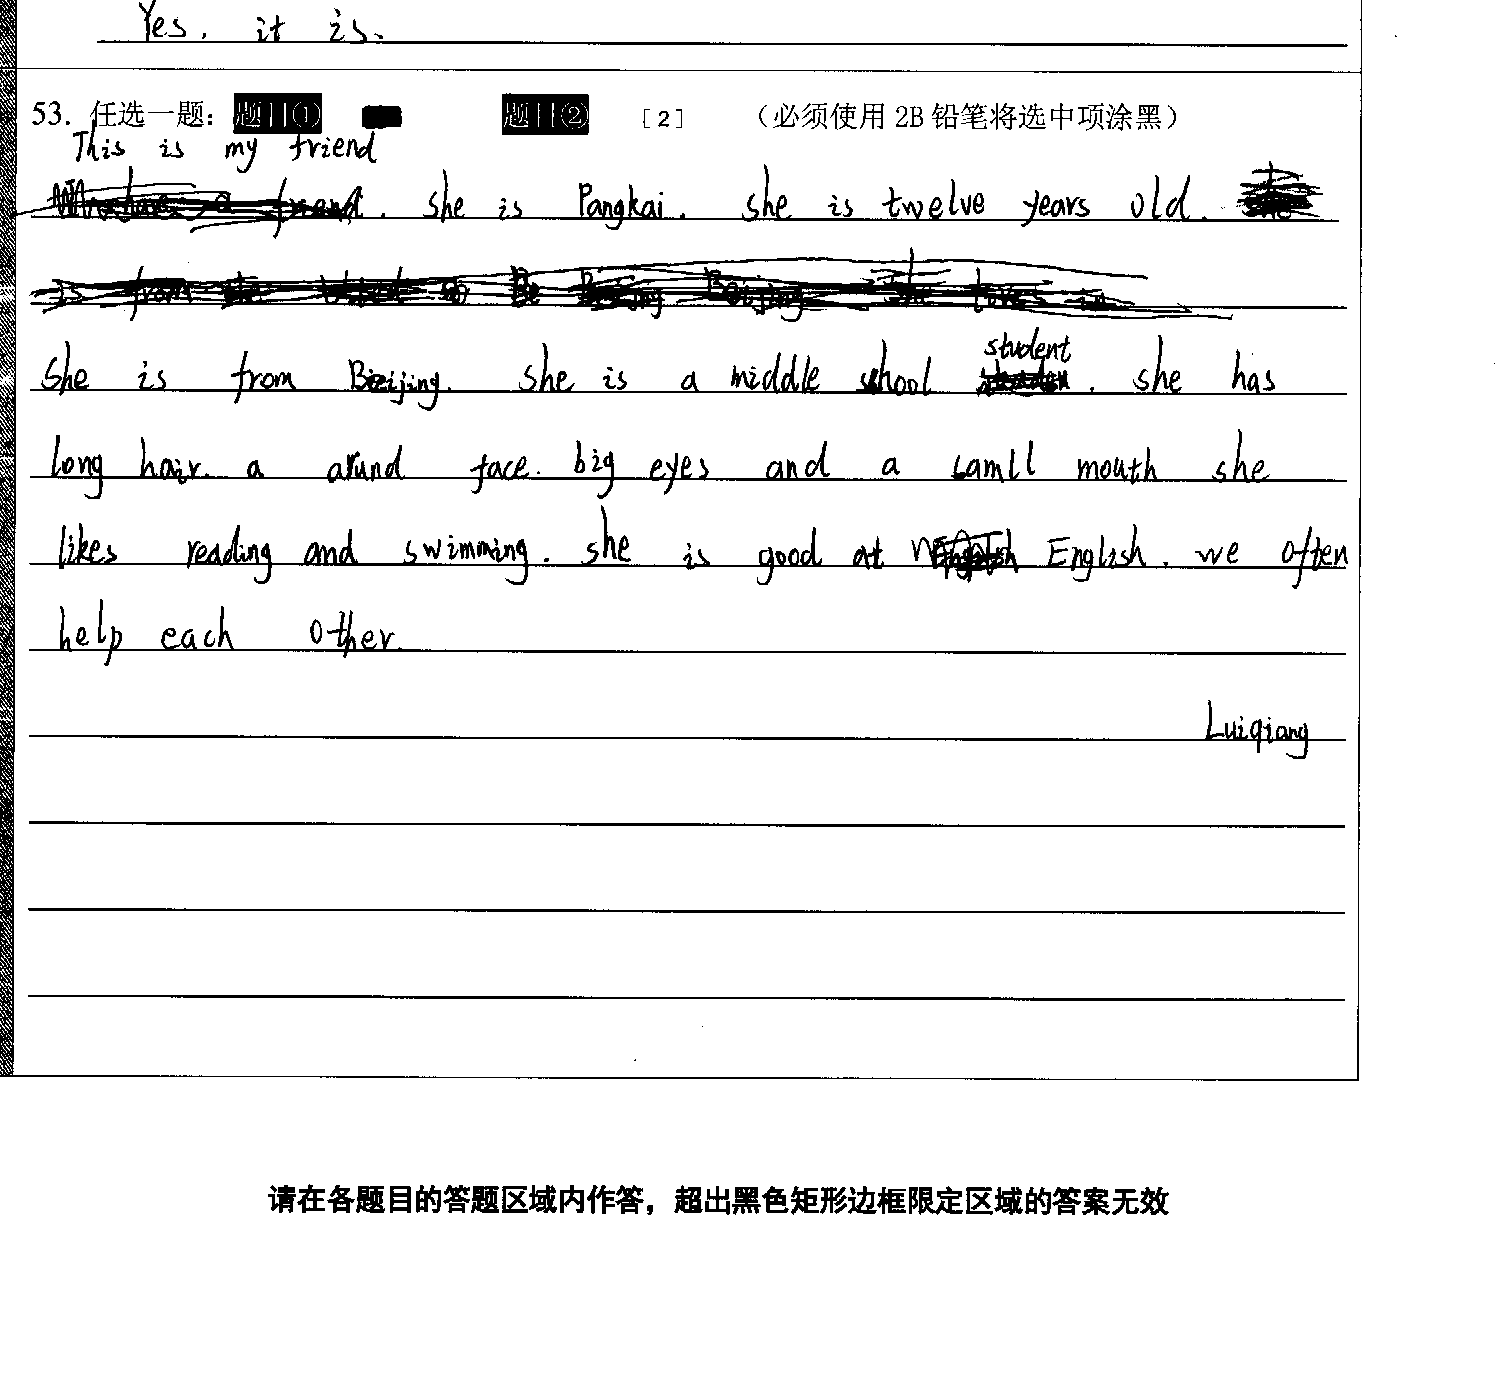 Yes. it is.
53. 任选一题: 题目① 题目② [2] (必须使用 2B 铅笔将选中项涂黑)
This is my friend
. she is Pangkai. she is twelve years old.
she is from Beijing. she is a middle school student . she has
long hair. a arund face. big eyes and a samll mouth she
likes reading and swimming. she is good at English. we often
help each other.
Luiqiang
请在各题目的答题区域内作答，超出黑色矩形边框限定区域的答案无效